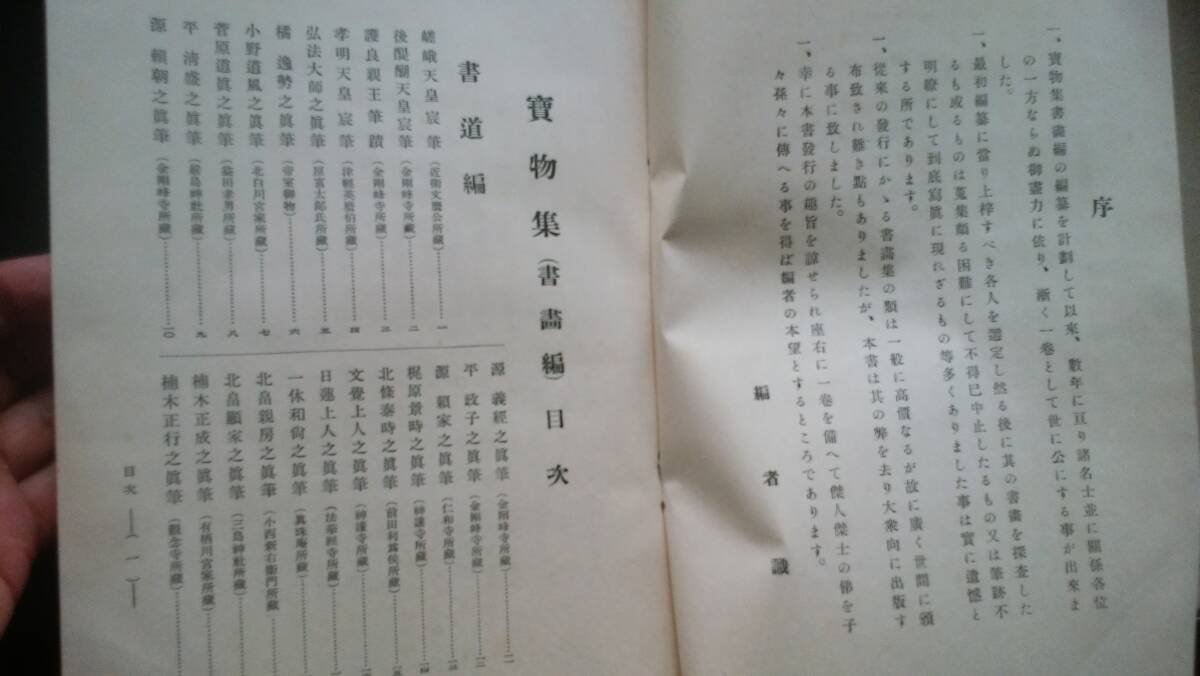 序
一、寶物集書畵編の編纂を計劃して以來、數年に亘り諸名士並に關係各位
の一方ならぬ御盡力に依り、漸く一卷として世に公にする事が出來ま
した。
一、最初編纂に當り上梓すべき各人を選定し然る後に其の書畵を探査した
るも或るものは蒐集頗る困難にして不得已中止したるもの又は筆跡不
明瞭にして到底寫眞に現れざるもの等多くありました事は實に遺憾と
する所であります。
一、從來の發行にかゝる書畵集の類は一般に高價なるが故に廣く世間に頒
布致され難き點もありましたが、本書は其の弊を去り大衆向に出版す
る事に致しました。
一、幸に本書發行の趣旨を諒せられ座右に一卷を備へて傑人傑士の俤を子
々孫々に傳へる事を得ば編者の本望とするところであります。
編者識
寶物集(書畵編)目次
書道編
嵯峨天皇宸筆(近衞文麿公所藏)……一
後醍醐天皇宸筆(金剛峰寺所藏)……二
護良親王筆蹟(金剛峰寺所藏)……三
孝明天皇宸筆(津輕英麿伯所藏)……四
弘法大師之眞筆(原富太郎氏所藏)……五
橘逸勢之眞筆(帝室御物)……六
小野道風之眞筆(北白川宮家所藏)……七
菅原道眞之眞筆(益田孝男所藏)……八
平清盛之眞筆(嚴島神社所藏)……九
源賴朝之眞筆(金剛峰寺所藏)……一〇
源義經之眞筆(金剛峰寺所藏)……一一
平政子之眞筆(金剛峰寺所藏)……一二
源賴家之眞筆(仁和寺所藏)……一三
梶原景時之眞筆(神護寺所藏)……一四
北條泰時之眞筆(前田利爲侯所藏)……一五
文覺上人之眞筆(神護寺所藏)……
日蓮上人之眞筆(法華經寺所藏)……
一休和尙之眞筆(眞珠庵所藏)……
北畠親房之眞筆(小西新右衞門所藏)……
北畠顯家之眞筆(三島神社所藏)……
楠木正成之眞筆(有栖川宮家所藏)……
楠木正行之眞筆(觀念寺所藏)……
目次――(一)――